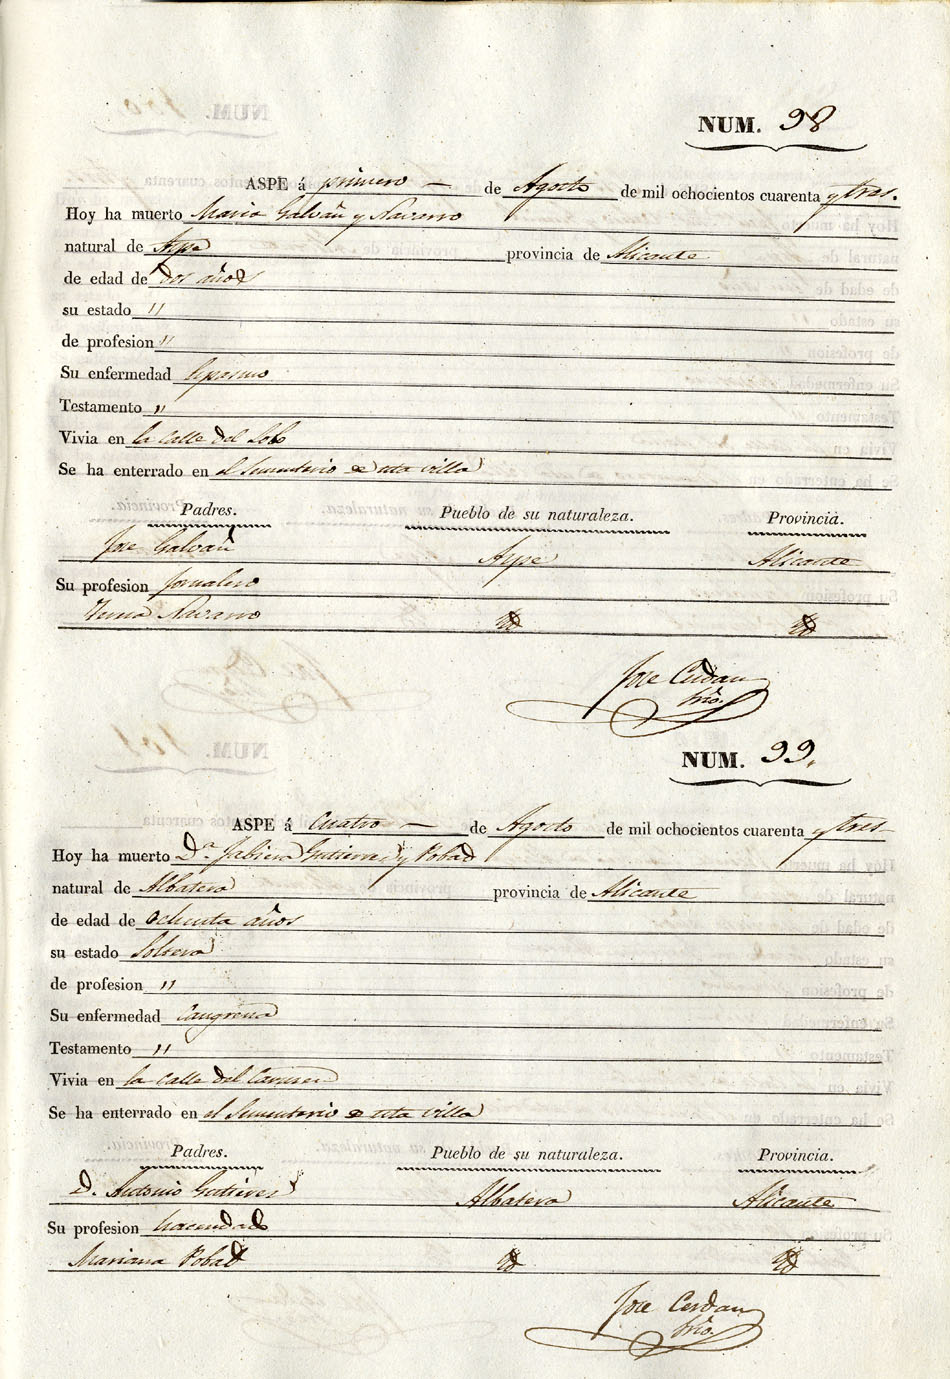 NUM. 98
ASPE á primero de Agosto de mil ochocientos cuarenta y tres.
Hoy ha muerto Maria Galvañ y Navarro
natural de Aspe provincia de Alicante
de edad de dos años
su estado "
de profesion "
Su enfermedad Espasmo
Testamento "
Vivia en la calle del Sol
Se ha enterrado en el Sementerio de esta villa
Padres. Pueblo de su naturaleza. Provincia.
Jose Galvañ Aspe Alicante
Su profesion Jornalero
Navarro Id Id
Jose Cerdan
Srio.
NUM. 99.
ASPE á Cuatro de Agosto de mil ochocientos cuarenta y tres
Hoy ha muerto D.ª Jabiera Gutierrez y Robad
natural de Albatera provincia de Alicante
de edad de ochenta años
su estado Soltera
de profesion "
Su enfermedad Cangrena
Testamento "
Vivia en la calle del Carmen
Se ha enterrado en el Sementerio de esta villa
Padres. Pueblo de su naturaleza. Provincia.
D. Antonio Gutierrez Albatera Alicante
Su profesion hacendado
Mariana Robad Id Id
Jose Cerdan
Srio.